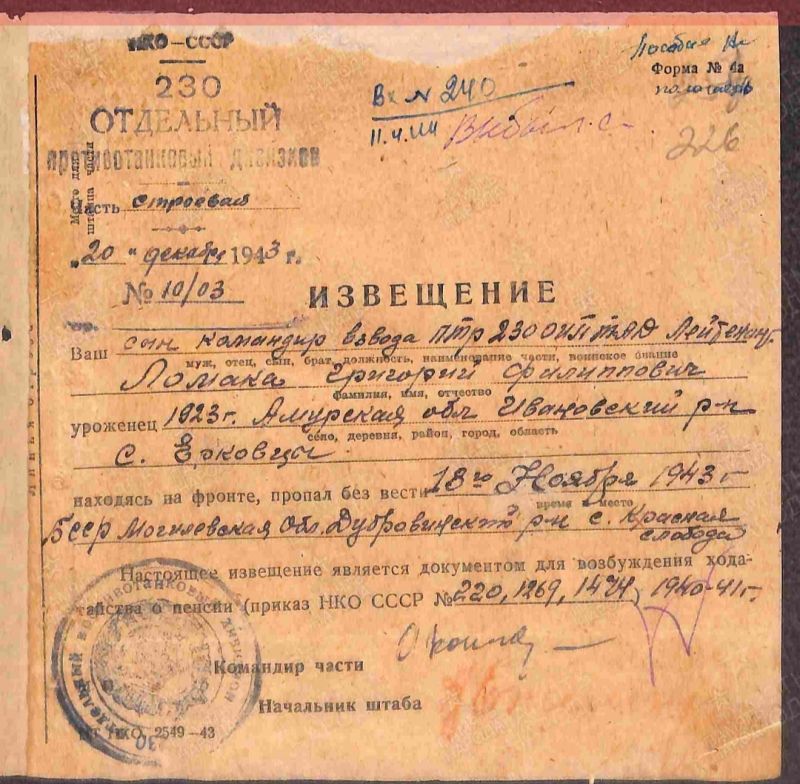 НКО—СССР
230
ОТДЕЛЬНЫЙ
противотанковый дивизион
Место для
штампа части
Часть строевая
„20" декабря 1943 г.
№ 10/03
Пособие не
Форма № 4а
Вх № 240
11.4.44
Выбыл с
226
ИЗВЕЩЕНИЕ
Ваш сын командир взвода ПТР 230 ОИПТАД Лейтенант
муж, отец, сын, брат, должность, наименование части, воинское звание
Ломака Григорий Филиппович
фамилия, имя, отчество
уроженец 1923 г. Амурская обл Ивановский р-н
село, деревня, район, город, область
с. Ерковцы
находясь на фронте, пропал без вести 18го Ноября 1943 г
время и место
Бсср Могилевская Обл. Дубровинский р-н с. Красная
слобода
Настоящее извещение является документом для возбуждения хода-
тайства о пенсии (приказ НКО СССР № 220, 1269, 1474, 1940-41 г.
Командир части
Начальник штаба
НКО 2549—43